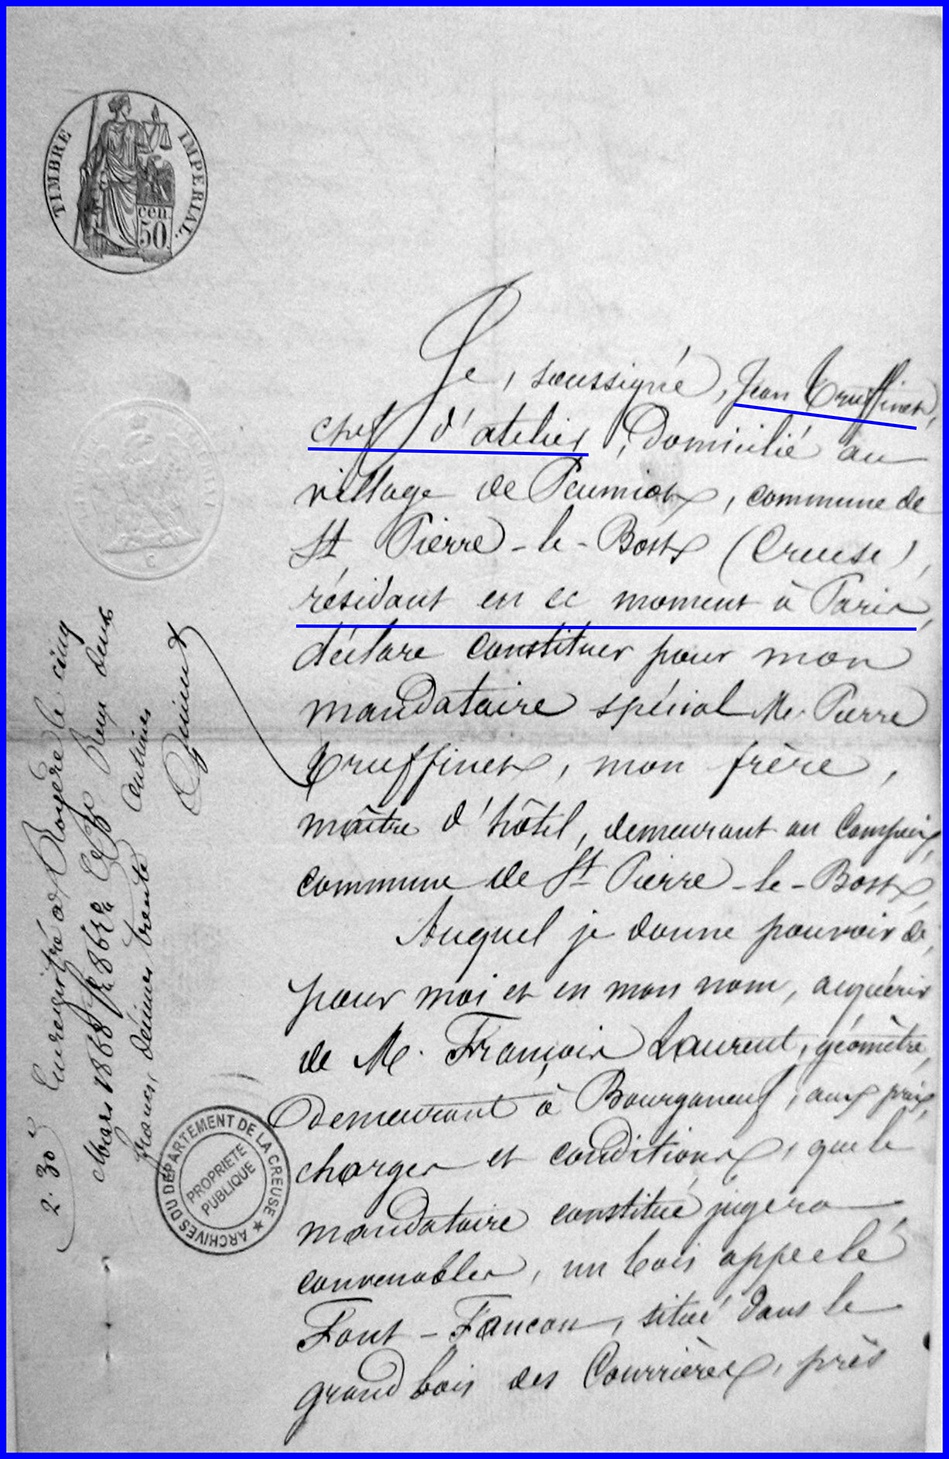 TIMBRE IMPERIAL.
cen
50
Je, soussigné, Jean Truffinet,
chef d'atelier, domicilié au
village de Peumiot, commune de
St Pierre-le-Bost (Creuse),
résidant en ce moment à Paris,
déclare constituer pour mon
mandataire spécial M. Pierre
Truffinet, mon frère,
maître d'hôtel, demeurant au Compeix,
commune de St Pierre-le-Bost,
Auquel je donne pouvoir de,
pour moi et en mon nom, acquérir
de M. François Laurent, géomètre,
demeurant à Bourganeuf, aux prix,
charges et conditions, que le
mandataire constitué jugera
convenables, un bois appelé
Font-Faucon, situé dans le
grand bois des Courrières, près
2. 30
Enregistré à Royère le cinq
Mars 1868 Reçu deux
francs, décimes trente centimes
ARCHIVES DU DÉPARTEMENT DE LA CREUSE ★
PROPRIÉTÉ
PUBLIQUE